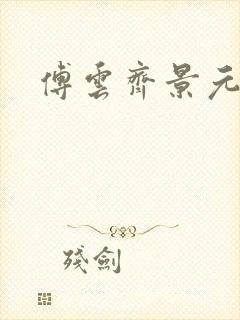 傅雲齊景元
殘劍